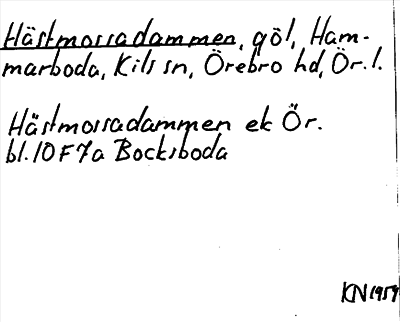 Hästmossadammen, göl, Ham-
marboda, Kils sn, Örebro hd, Ör. l.
Hästmossadammen ek Ör.
bl. 10F7a Bocksboda
KN 1959